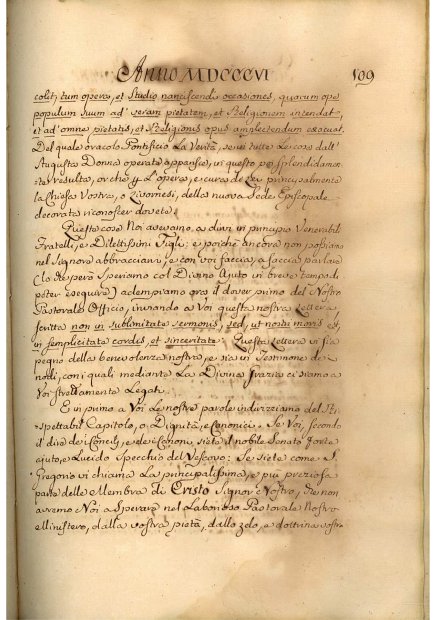 Anno MDCCCVI 109
colit; tum opera, et studio nanciscendi occasiones, quarum ope
populum suum ad veram pietatem, et Religionem incendat,
et ad omne pietatis, et Religionis opus amplectendum excitat.
Del quale oracolo Pontificio la Verità, se in tutte le cose dall'
Augusta Donna operate apparisce, in questo pei splendidamen
te risulta, or che l'opera, e cura de principalmente
la Chiesa Vostra, o Livornesi, della nuova Sede Episcopale
decorata riconoscer dovete.
Queste cose Noi avevamo a dirvi in principio Venerabili
Fratelli, e Dilettissimi Figli; e poichè ancora non possiamo
nel Signore abbracciarvi, e con voi faccia, a faccia parlare
(lo che però speriamo col Divino Ajuto in breve tempo di
poter eseguire) adempiamo ora il dover primo del Nostro
Pastorale Officio, inviando a Voi questa nostra Lettera
scritta non in sublimitate sermonis, sed, ut nostri moris est,
in semplicitate cordis, et sinceritate. Questa Lettera vi sia
pegno della benevolenza nostra, e sia in Testimone de'
nodi, con i quali mediante la Divina Grazia ci siamo a
Voi strettamente Legati.
E in primo a Voi le nostre parole indirizziamo del Ri-
spettabil Capitolo, o Dignità, e Canonici. Se Voi, secondo
il dire de' Concilj, e de' Canoni, siete il nobile Senato, forte
ajuto, e Lucido Specchio del Vescovo: Se siete come S.
Gregorio vi chiama la principalissima, e più preziosa
parte delle Membra di Cristo Signor Nostro, che non
avremo Noi a sperare nel Laborioso Pastorale Nostro
Ministero, dalla vostra pietà, dallo zelo, e dottrina vostra